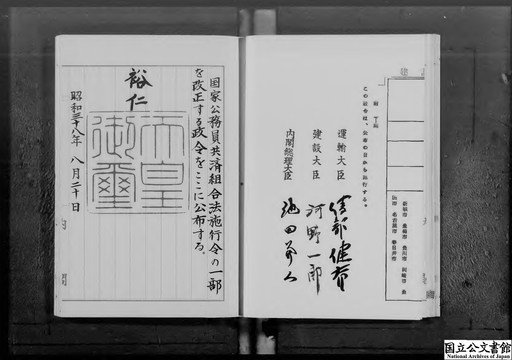 この政令は、公布の日から施行する。
運輸大臣 綾部健太郎
建設大臣 河野一郎
内閣総理大臣 池田勇人
国家公務員共済組合法施行令の一部
を改正する政令をここに公布する。
裕仁
天皇御璽
昭和三十八年 八月二十日
内閣
国立公文書館
National Archives of Japan